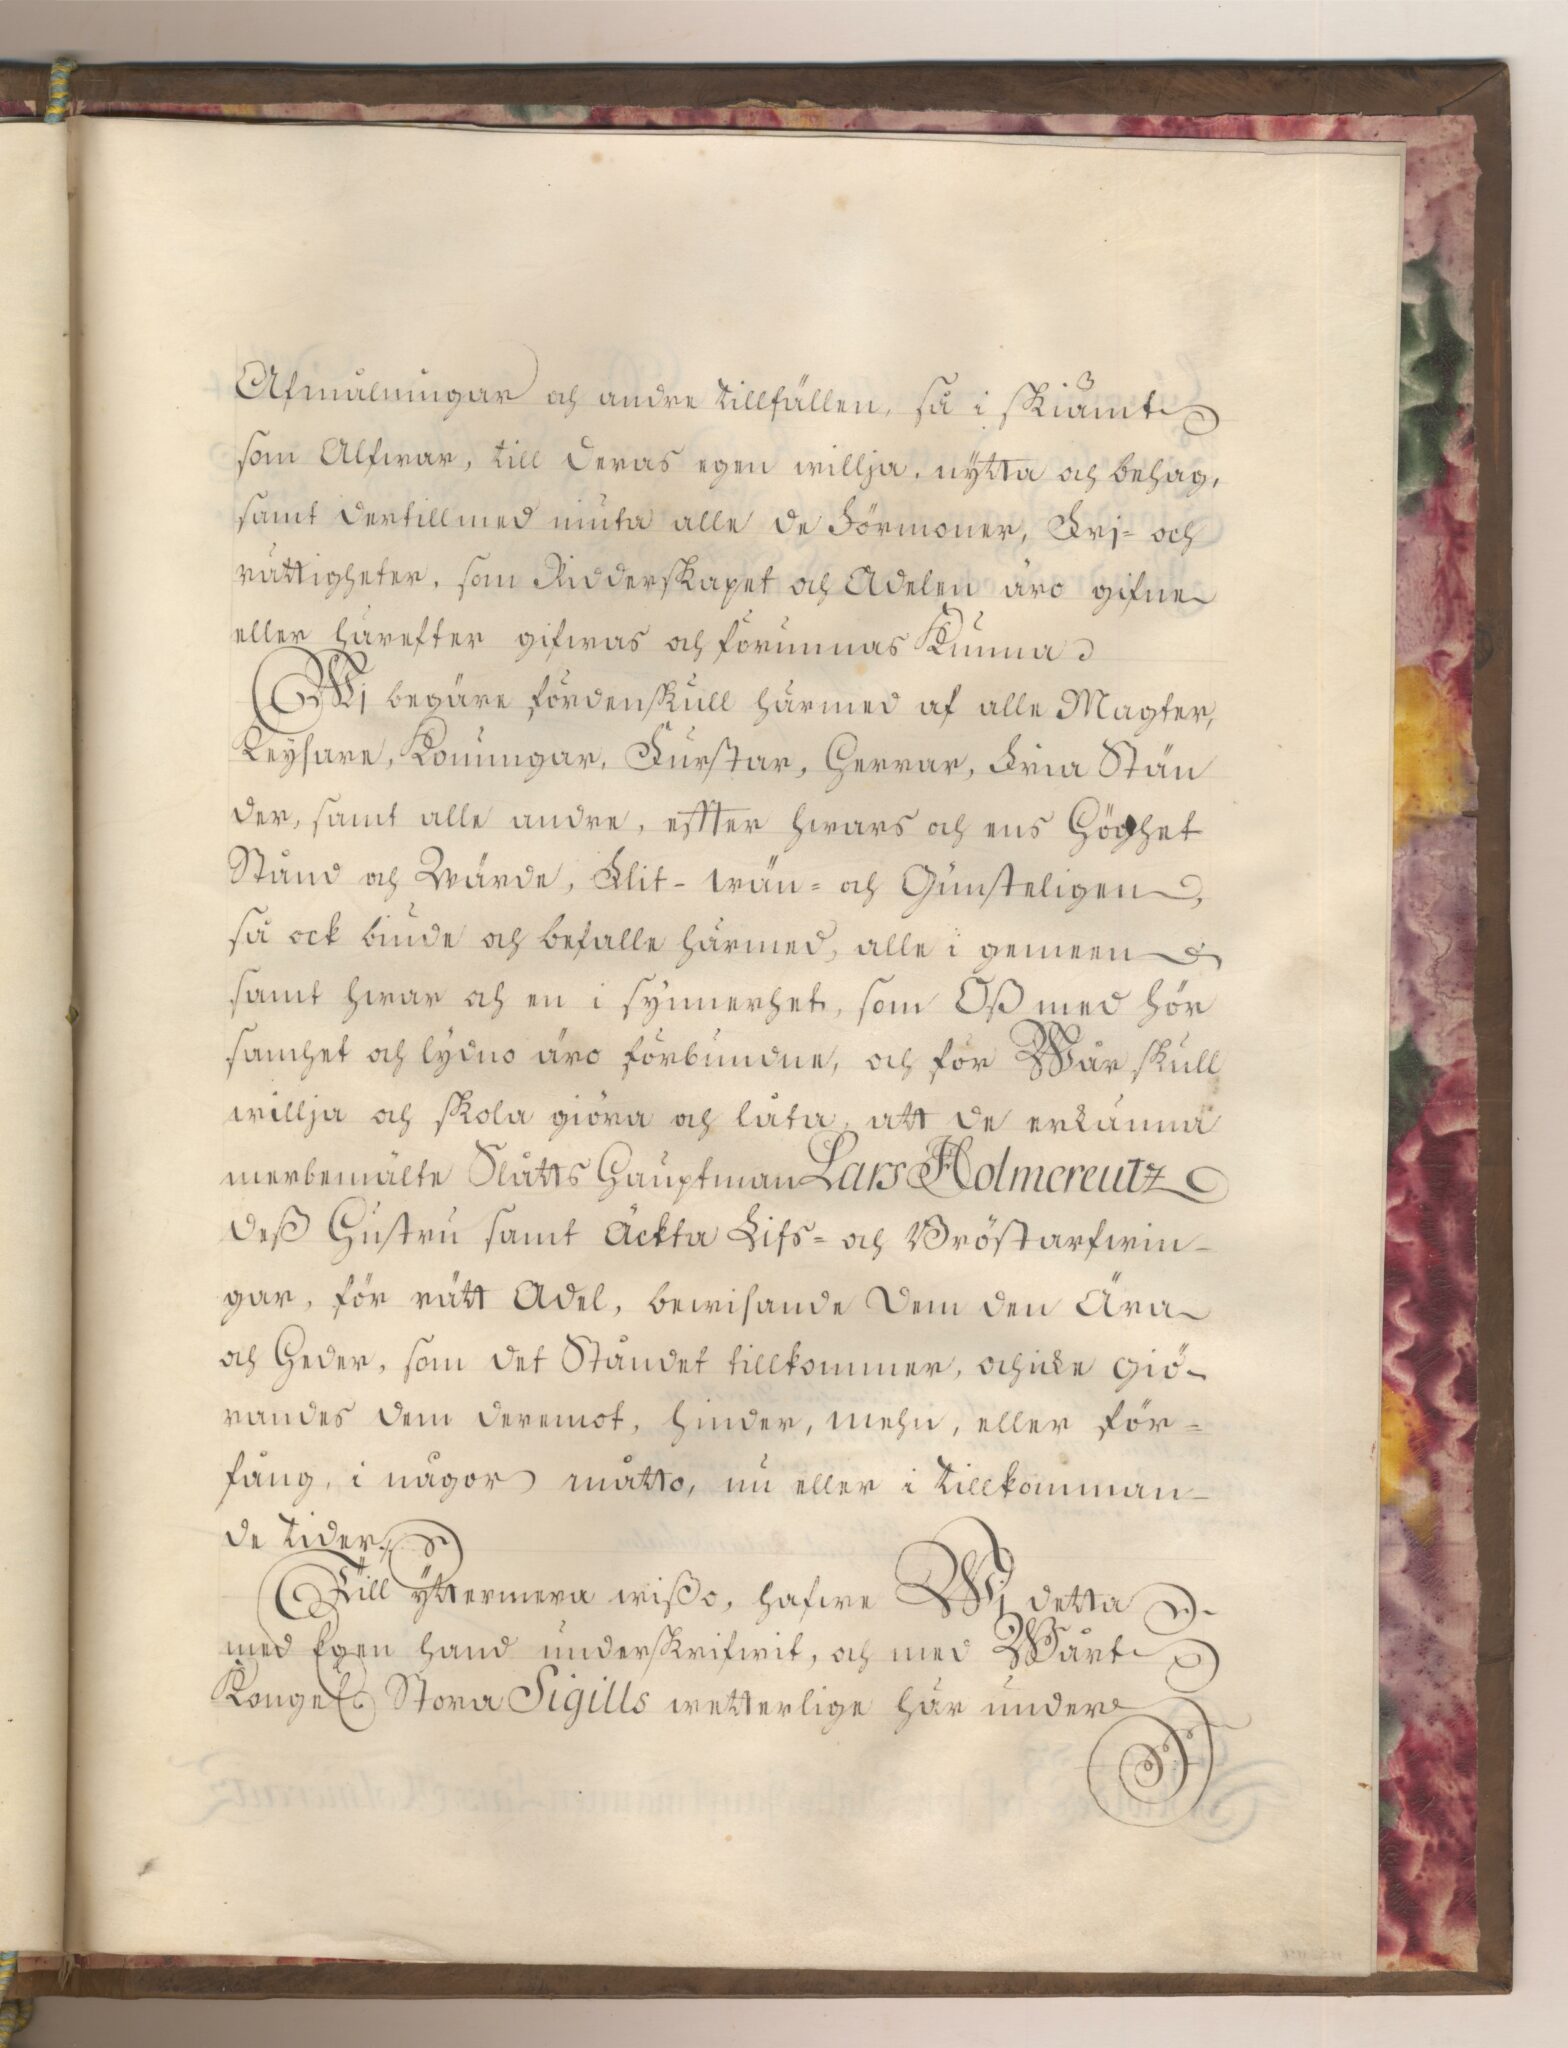 Afmålningar och andre tillfällen, så i skiämt
som Alfwar, till deras egen willja, nytta och behag,
samt dertillmed niuta alle de Förmoner, Frj- och
rättigheter, som Ridderskapet och Adelen äro gifne
eller härefter gifwas och förunnas Kunna
Wj begäre fördenskull härmed af alle Magter,
Keysare, Konungar, Furstar, Herrar, Fria Stän
der, samt alle andre, effter hwars och ens Höghet
Stånd och Wärde, Flit- wän- och Günsteligen,
så ock biude och befalle härmed, alle i gemeen
samt hwar och en i synnerhet, som Oß med hör
samhet och lydno äro förbundne, och för Wår skull
willja och skola giöra och låta, att de erkänna
merbemälte Slåtts Hauptman Lars Holmcreutz
deß Hustru samt Äckta Lifs- och Bröstarfwin-
gar, för rätt Adel, bewisande dem den Ära
och Heder, som det Ståndet tillkommer, och icke giö-
randes dem deremot, hinder, mehn, eller för-
fång, i någor måtto, nu eller i tillkomman-
de tider.
Till yttermera wißo, hafwe Wj detta
med Egen hand underskrifwit, och med Wårt
Kongel. Stora Sigills wetterlige här under